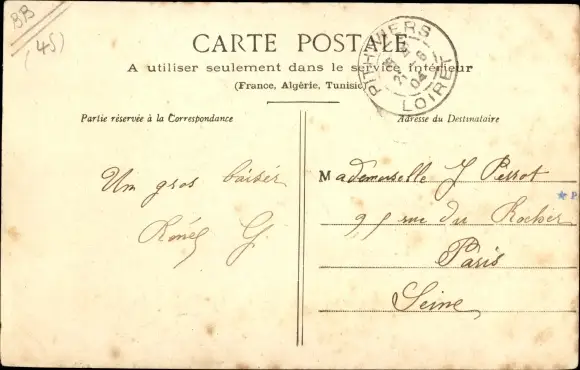 BB
(45)
CARTE POSTALE
A utiliser seulement dans le service intérieur
(France, Algérie, Tunisie)
PITHIVIERS
LOIRET
Partie réservée à la Correspondance
Adresse du Destinataire
Un gros baiser
Renée G.
Mademoiselle J Perrot
95 rue du Rocher
Paris
Seine